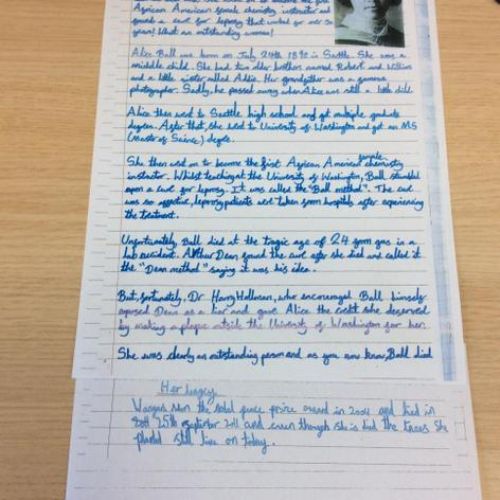 African American female chemistry instructor and
found a cure for leprosy that worked for over 30
years! What an outstanding woman!
Alice Ball was born on July 24th 1892 in Seattle. She was a
middle child. She had two older brothers named Robert and William
and a little sister called Addie. Her grandfather was a famous
photographer. Sadly, he passed away when Alice was still a little child.
Alice then went to Seattle high school and got multiple graduate
degrees. After that, she went to University of Washington and got an MS
(master of Science) degree.
She then went on to become the first African American female chemistry
instructor. Whilst teaching at the University of Washington, Ball stumbled
upon a cure for leprosy. It was called the "Ball method". The cure
was so effective, leprosy patients were taken from hospitals after experiencing
the treatment.
Unfortunately, Ball died at the tragic age of 24 from gas in a
lab accident. Arthur Dean found the cure after she died and called it
the "Dean method" saying it was his idea.
But, fortunately, Dr Harry Hollman, who encouraged Ball himself
exposed Dean as a liar and gave Alice the credit she deserved
by making a plaque outside the University of Washington for her.
She was clearly an outstanding person and as you now know, Ball died
Her legacy
won the nobel peace prize award in 2004 and died in
25th september 2011 and even though she is died the trees she
still live on today.